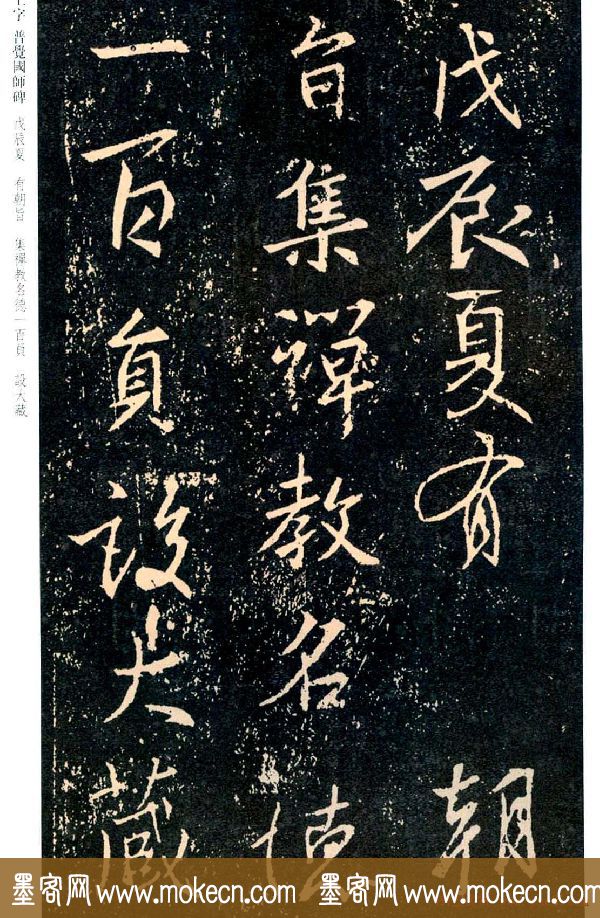 戊辰夏有朝
旨集禪教名德
一百員設大藏
王字 普覺國師碑 戊辰夏 有朝旨 集禪教名德一百員 設大藏
墨客网 www.mokecn.com 墨客网 www.mokecn.com